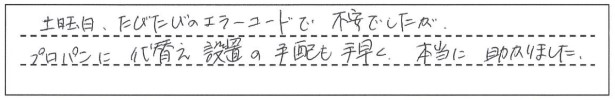 土曜日、たびたびのエラーコードで 不安でしたが、
プロパンに 代替え 設置の 手配も 手早く、本当に 助かりました。